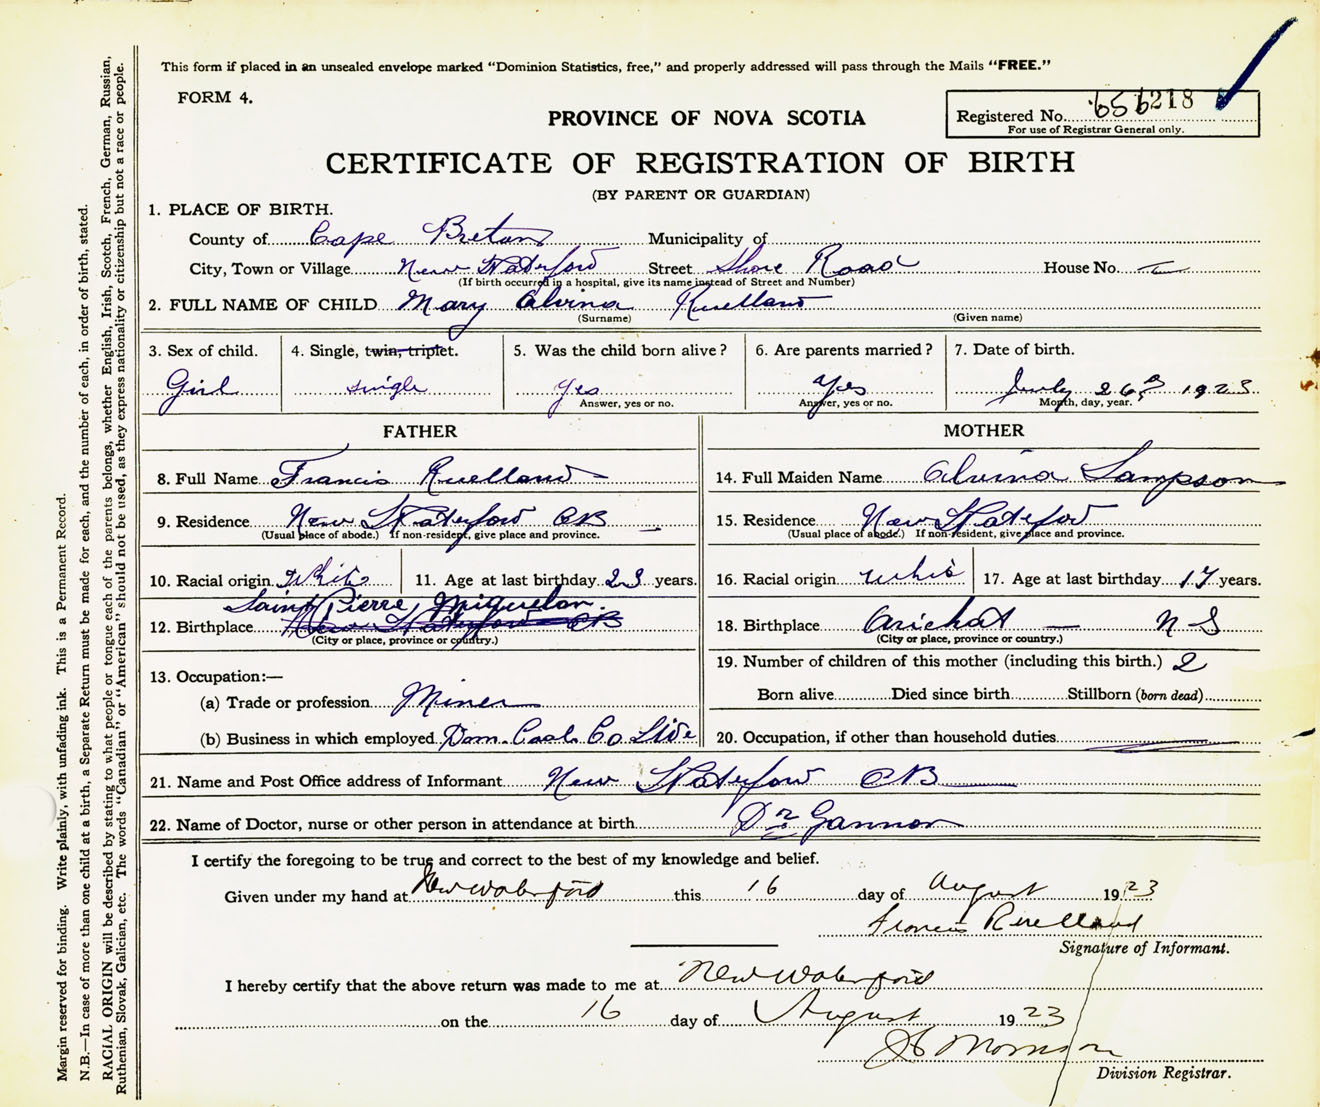 This form if placed in an unsealed envelope marked "Dominion Statistics, free," and properly addressed will pass through the Mails "FREE."
FORM 4.
Registered No. 656218
For use of Registrar General only.
PROVINCE OF NOVA SCOTIA
CERTIFICATE OF REGISTRATION OF BIRTH
(BY PARENT OR GUARDIAN)
1. PLACE OF BIRTH.
County of Cape Breton Municipality of
City, Town or Village New Waterford Street Shore Road House No. —
(If birth occurred in a hospital, give its name instead of Street and Number)
2. FULL NAME OF CHILD Mary Alvina Ruelland
(Surname) (Given name)
3. Sex of child. Girl
4. Single, twin, triplet. single
5. Was the child born alive? Yes
Answer, yes or no.
6. Are parents married? Yes
Answer, yes or no.
7. Date of birth. July 26 1923
Month, day, year.
FATHER
8. Full Name Francis Ruelland
9. Residence New Waterford CB
(Usual place of abode.) If non-resident, give place and province.
10. Racial origin White 11. Age at last birthday 23 years.
Saint Pierre Miquelon.
12. Birthplace New Waterford CB
(City or place, province or country.)
13. Occupation:—
(a) Trade or profession Miner
(b) Business in which employed Dom. Coal Co
MOTHER
14. Full Maiden Name Alvina Sampson
15. Residence New Waterford
(Usual place of abode.) If non-resident, give place and province.
16. Racial origin White 17. Age at last birthday 17 years.
18. Birthplace Arichat — N S
(City or place, province or country.)
19. Number of children of this mother (including this birth.) 2
Born alive Died since birth Stillborn (born dead)
20. Occupation, if other than household duties
21. Name and Post Office address of Informant New Waterford CB
22. Name of Doctor, nurse or other person in attendance at birth Dr Gannon
I certify the foregoing to be true and correct to the best of my knowledge and belief.
Given under my hand at New Waterford this 16 day of August 1923
Francis Ruelland
Signature of Informant.
I hereby certify that the above return was made to me at New Waterford
on the 16 day of August 1923
Morrison
Division Registrar.
Margin reserved for binding. Write plainly, with unfading ink. This is a Permanent Record.
N.B.—In case of more than one child at a birth, a Separate Return must be made for each, and the number of each, in order of birth, stated.
RACIAL ORIGIN will be described by stating to what people or tongue each of the parents belongs, whether English, Irish, Scotch, French, German, Russian,
Ruthenian, Slovak, Galician, etc. The words "Canadian" or "American" should not be used, as they express nationality or citizenship but not a race or people.